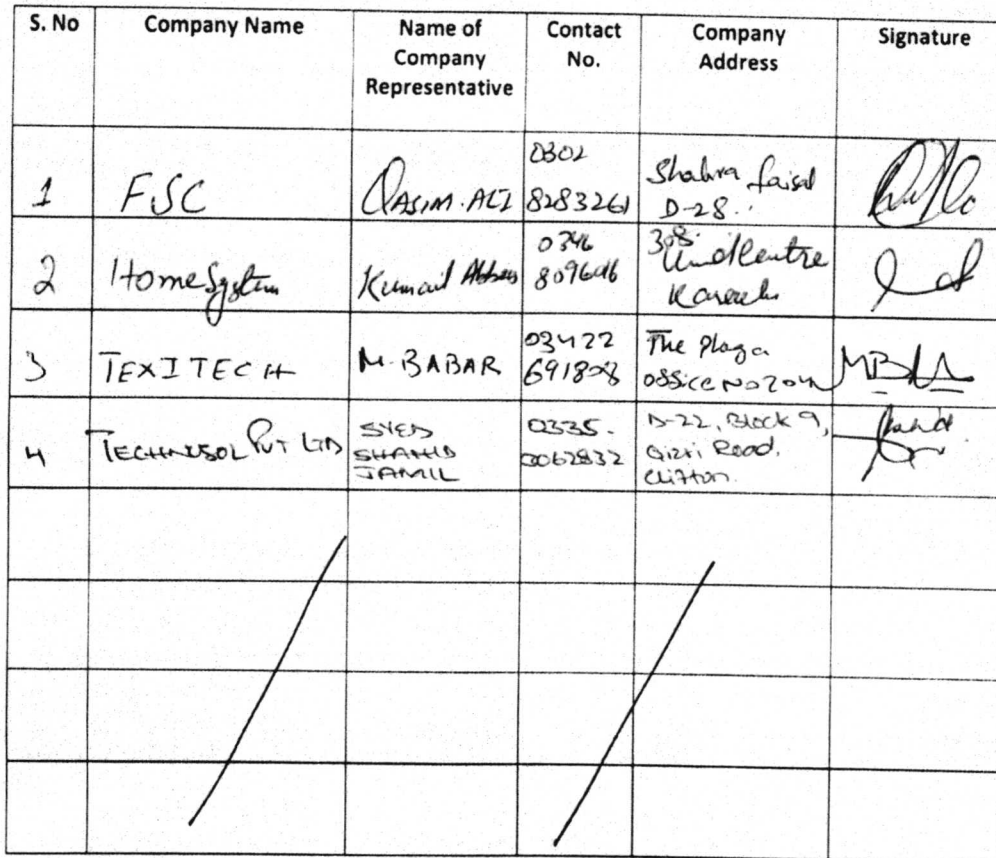 S. No Company Name Name of Company Representative Contact No. Company Address Signature
1 FSC QASIM. ALI 0302 8283261 Shahra faisal D-28.
2 Home System Kumail Abbas 0346 809 308
3 TEXITECH M. BABAR 03422 691808 The Plaza office No 204
4 TECHNOSOL PVT LTD SYED SHAHID JAMIL 0335. 0062832 D-22, Block 9, Gizri Road. Clifton.